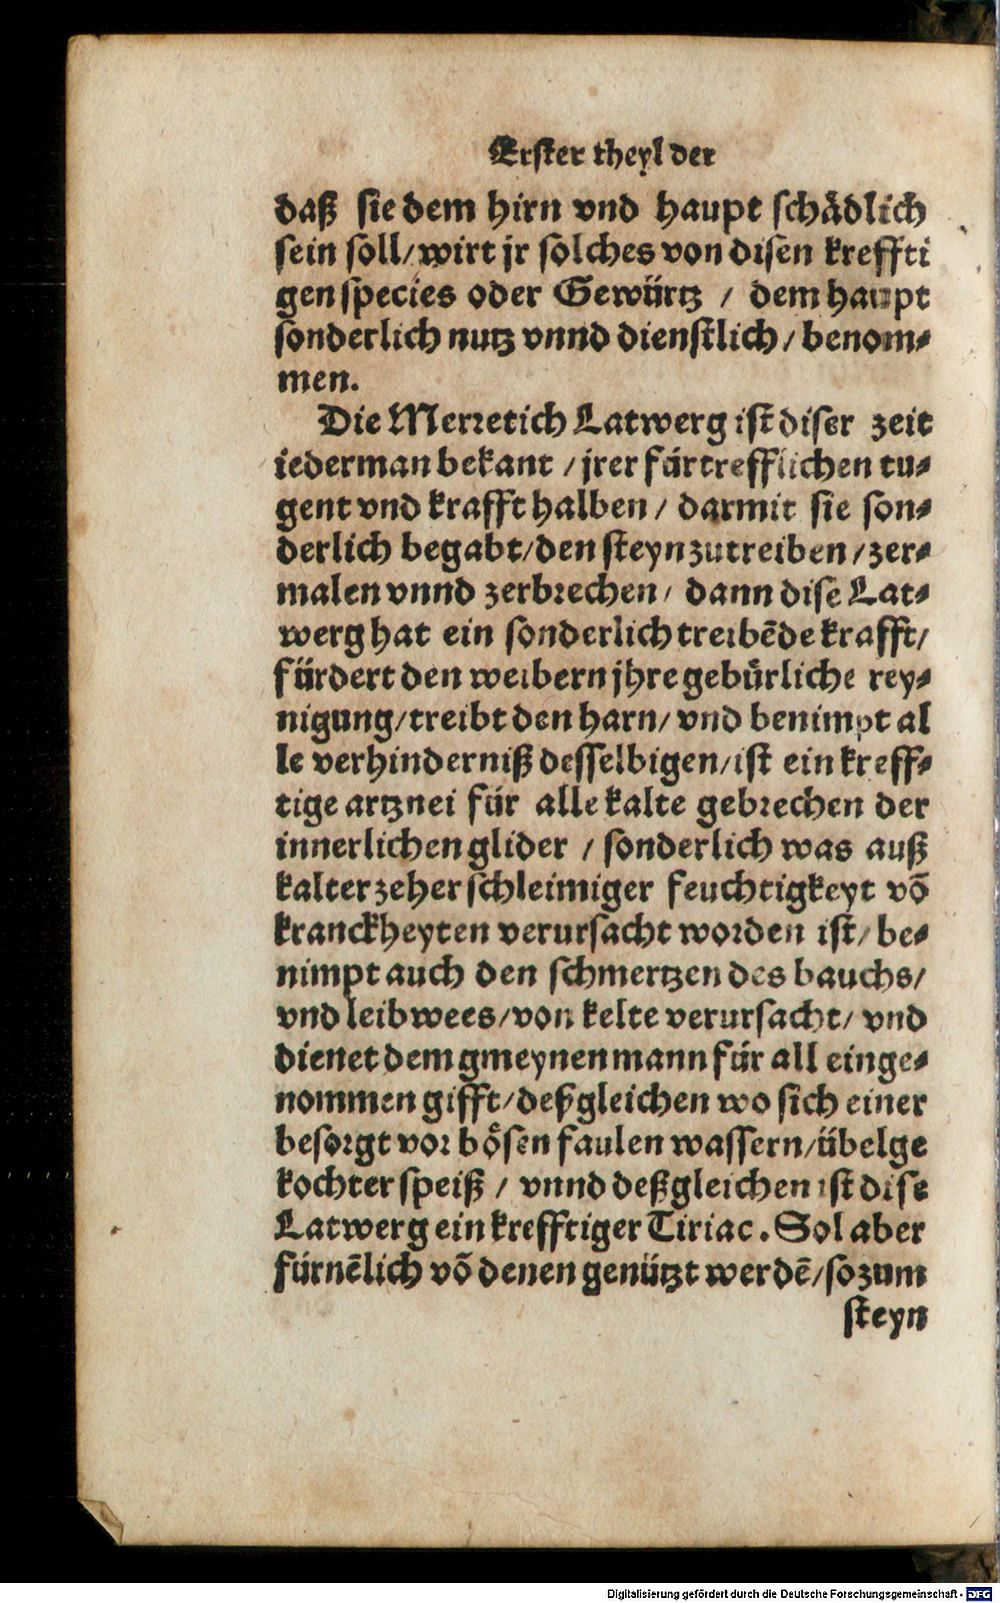 Erster theyl der
daß sie dem hirn vnd haupt schådlich
sein soll/ wirt jr solches von disen kreffti
gen species oder Gewürtz / dem haupt
sonderlich nutz vnnd dienstlich / benom⸗
men.
Die Merretich Latwerg ist diser zeit
iederman bekant / jrer fürtrefflichen tu⸗
gent vnd krafft halben / darmit sie son⸗
derlich begabt/ den steyn zutreiben / zer⸗
malen vnnd zerbrechen / dann dise Lat⸗
werg hat ein sonderlich treibēde krafft/
fürdert den weibern jhre gebürliche rey⸗
nigung/ treibt den harn/ vnd benimpt al
le verhinderniß desselbigen/ ist ein kreff⸗
tige artznei für alle kalte gebrechen der
innerlichen glider / sonderlich was auß
kalter zeher schleimiger feuchtigkeyt võ
kranckheyten verursacht worden ist/ be⸗
nimpt auch den schmertzen des bauchs/
vnd leibwees/ von kelte verursacht/ vnd
dienet dem gmeynen mann für all einge⸗
nommen gifft/ deßgleichen wo sich einer
besorgt vor bösen faulen wassern/ übelge
kochter speiß / vnnd deßgleichen ist dise
Latwerg ein krefftiger Tiriac. Sol aber
fürnēlich võ denen genützt werdē/ so zum
steyn
Digitalisierung gefördert durch die Deutsche Forschungsgemeinschaft - DFG